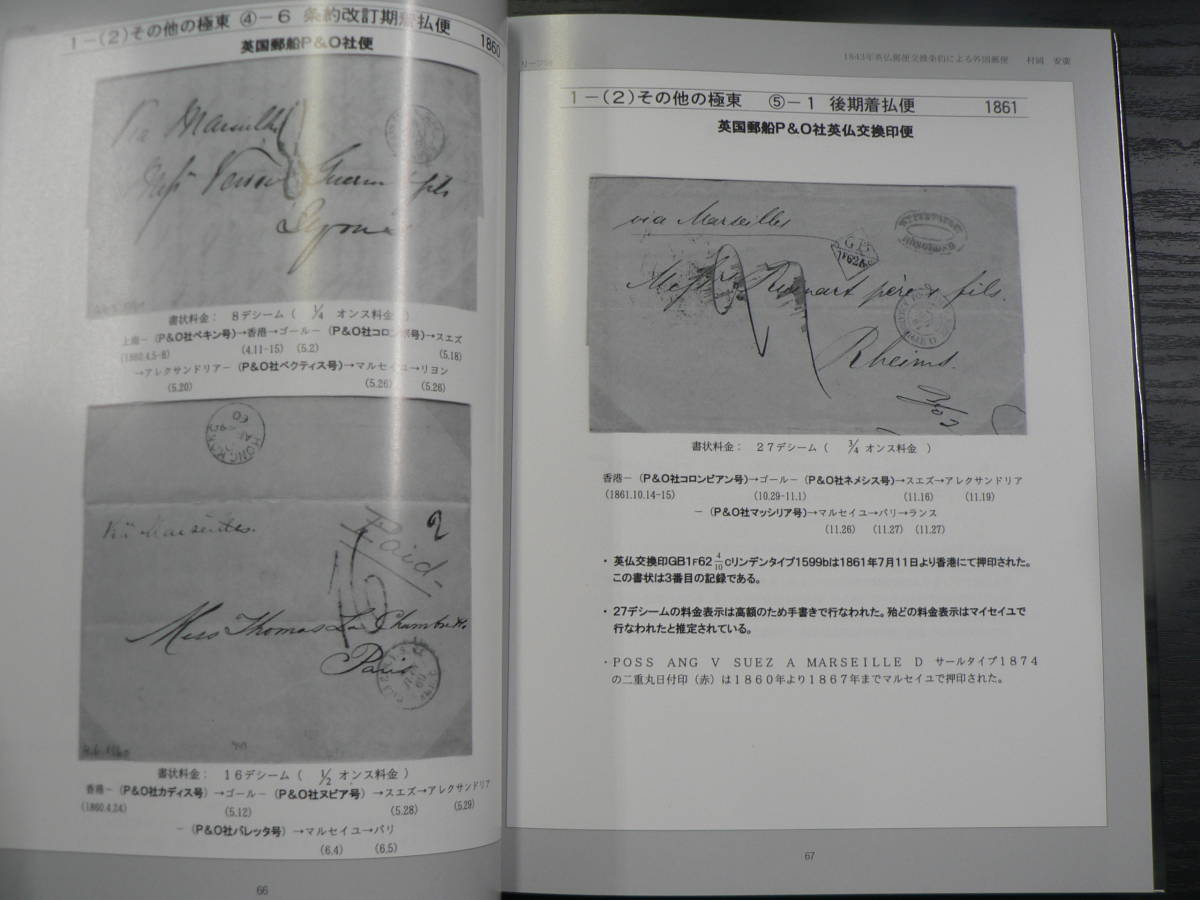 1-(2)その他の極東 ④-6 条約改訂期着払便 1860
英国郵船P&O社便
Via Marseilles
Lyon
書状料金： 8デシーム( 1/4 オンス料金 )
上海-(P&O社ペキン号)→香港→ゴール-(P&O社コロンボ号)→スエズ
(1860.4.5-8) (4.11-15) (5.2) (5.18)
→アレクサンドリア-(P&O社ベクティス号)→マルセイユ→リヨン
(5.20) (5.26) (5.26)
HONG KONG
Via Marseilles.
Paid
2
Paris
書状料金： 16デシーム( 1/2 オンス料金 )
香港-(P&O社カディス号)→ゴール-(P&O社ヌビア号)→スエズ→アレクサンドリア
(1860.4.24) (5.12) (5.28) (5.29)
-(P&O社バレッタ号)→マルセイユ→パリ
(6.4) (6.5)
66
1843年英仏郵便交換条約による外国郵便 村岡 安廣
1-(2)その他の極東 ⑤-1 後期着払便 1861
英国郵船P&O社英仏交換印便
via Marseilles
père & fils.
Rheims.
書状料金： 27デシーム( 3/4 オンス料金 )
香港-(P&O社コロンビアン号)→ゴール-(P&O社ネメシス号)→スエズ→アレクサンドリア
(1861.10.14-15) (10.29-11.1) (11.16) (11.19)
-(P&O社マッシリア号)→マルセイユ→パリ→ランス
(11.26) (11.27) (11.27)
・英仏交換印GB1F62 4/10 cリンデンタイプ1599bは1861年7月11日より香港にて押印された。
この書状は3番目の記録である。
・27デシームの料金表示は高額のため手書きで行なわれた。殆どの料金表示はマイセイユで
行なわれたと推定されている。
・POSS ANG V SUEZ A MARSEILLE D サールタイプ1874
の二重丸日付印(赤)は1860年より1867年までマルセイユで押印された。
67